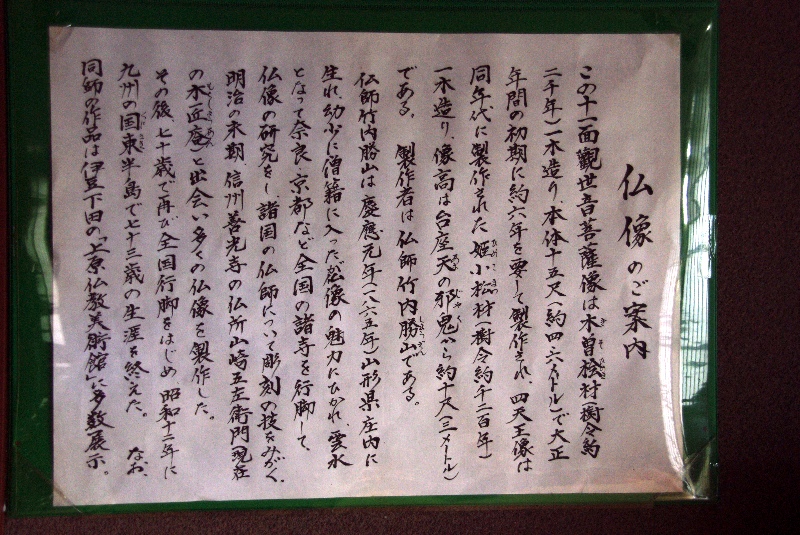 仏像のご案内
この十一面観世音菩薩像は木曽桧材（樹令約
二千年）一木造り、本体十五尺（約四・六メートル）で大正
年間の初期に約六年を要して製作され、四天王像は
同年代に製作された姫小松材（樹令約千二百年）
一木造り、像高は台座天の邪鬼から約十尺（三メートル）
である。　製作者は仏師竹内勝山である。
仏師竹内勝山は慶應元年（一八六五年）山形県庄内に
生れ、幼少に僧籍に入ったが仏像の魅力にひかれ、雲水
となって奈良、京都など全国の諸寺を行脚して、
仏像の研究をし、諸国の仏師について彫刻の技をみがく。
明治の末期、信州善光寺の仏所山崎五左衛門（現在
の木匠庵）と出会い多くの仏像を製作した。
その後、七十歳で再び全国行脚をはじめ、昭和十二年に
九州の国東半島で七十三歳の生涯を終えた。　なお、
同師の作品は伊豆下田の「上原仏教美術館」に多数展示。